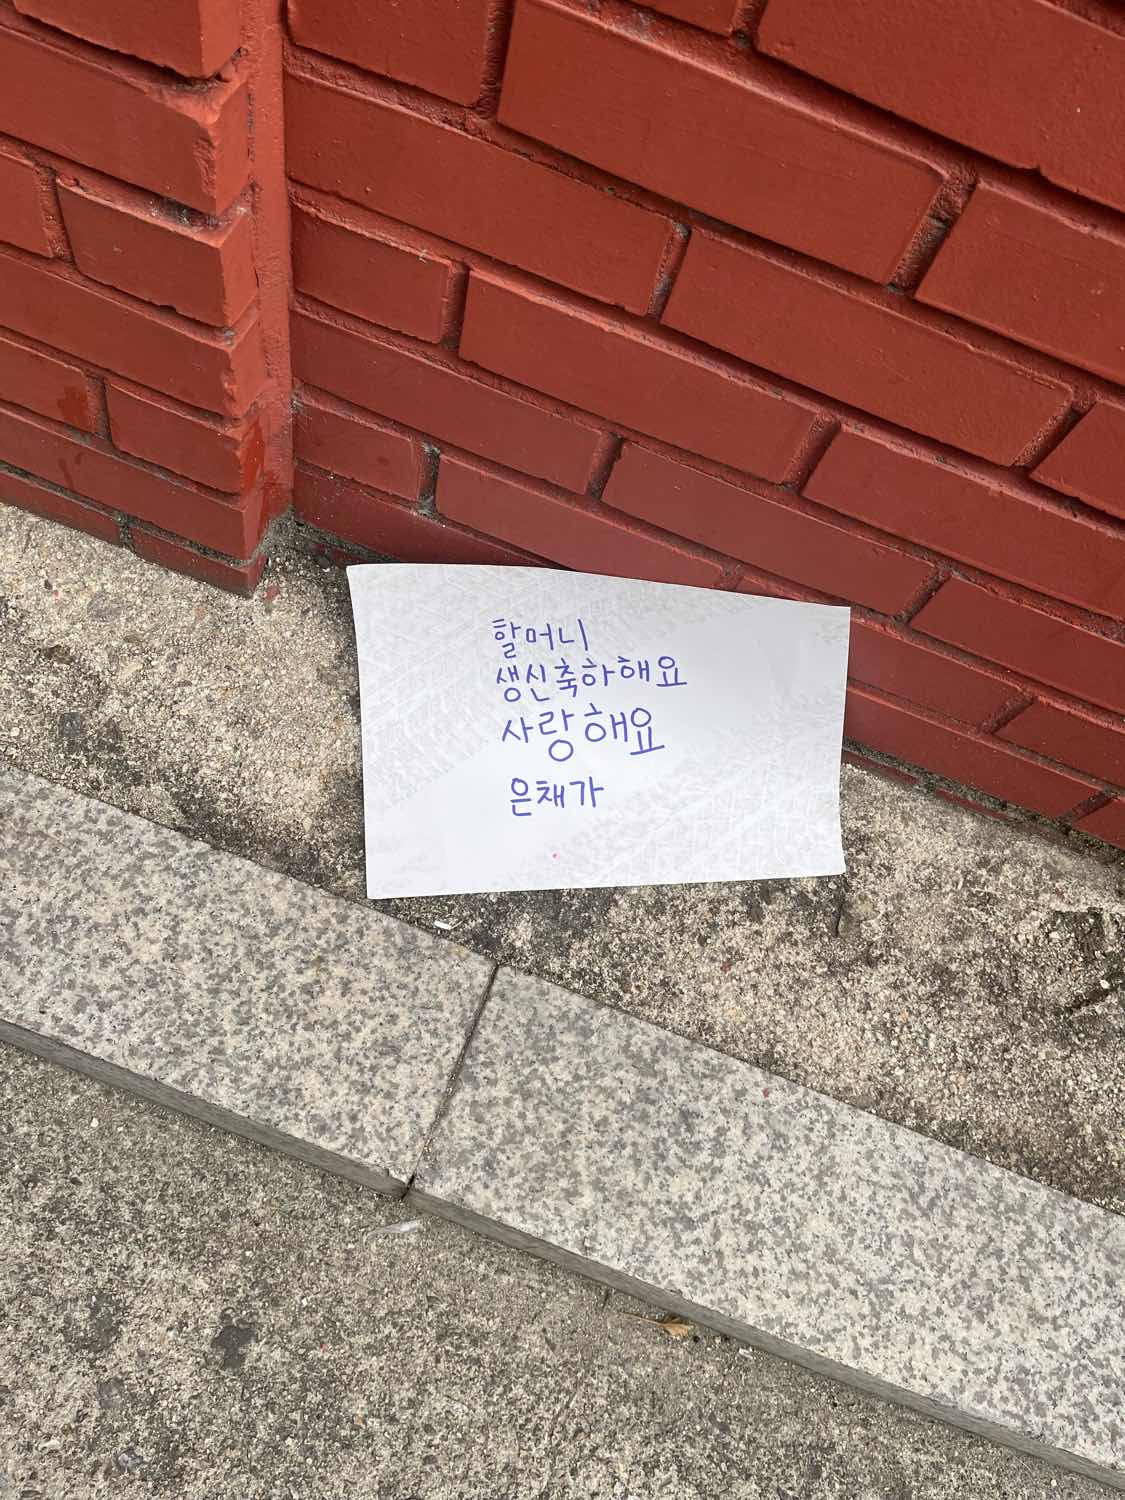 할머니
생신축하해요
사랑해요
은채가